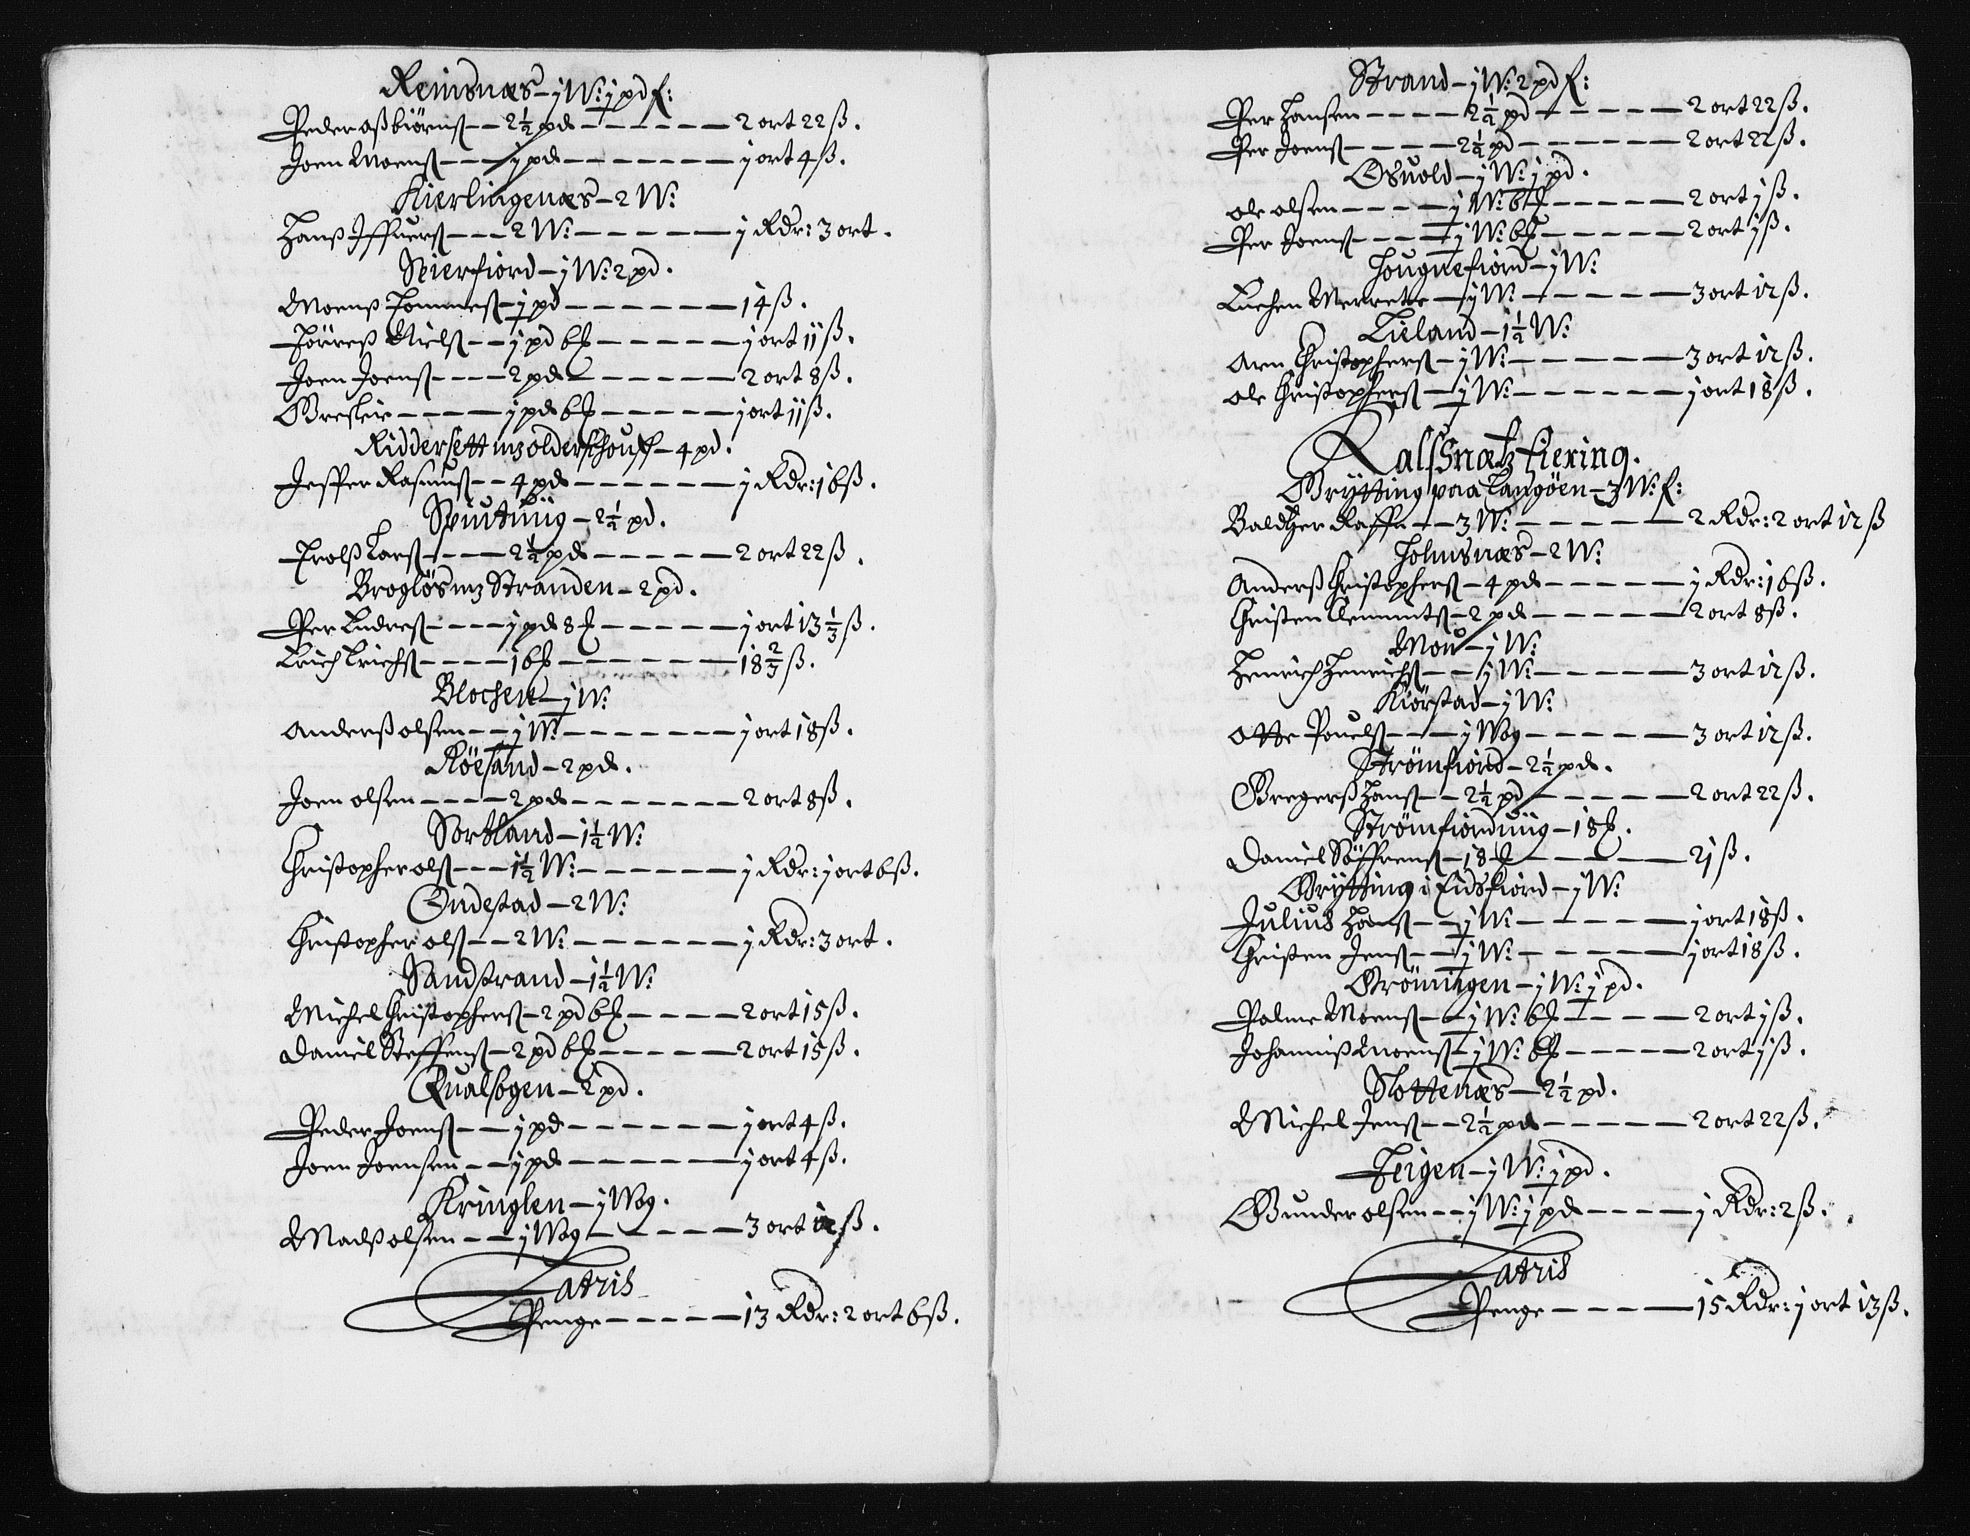 Reinsnæs – j W: j pd f:
Peder aßbiörnß – – 2½ pd – – – – – 2 ort 22 ß.
Joen Moenß – – – j pd – – – – – – j ort 4 ß.
Kierlingenæs – 2 W:
Hanß Iffuerß – – – 2 W: – – – – – j Rdr: 3 ort.
Spierfiord – j W: 2 pd.
Moenß Tommeß – j pd – – – – – – 14 ß.
Jörreß Nielß – – j pd 6 ℔ – – – – – j ort 11 ß.
Joen Joenß – – – – 2 pd – – – – – 2 ort 8 ß.
Greskie – – – – j pd 6 ℔ – – – – – j ort 11 ß.
Riddersett – 4 pd.
Jesper Rasmuß – – 4 pd – – – – – – j Rdr: 16 ß.
Spiutüng – 2½ pd.
Trolß Larß – – – 2½ pd – – – – – 2 ort 22 ß.
Broglös Stranden – 2 pd.
Per Endreß – – – j pd 8 ℔ – – – – – j ort 13⅓ ß.
Erich Erichß – – – – 16 ℔ – – – – – – 18⅔ ß.
Blochen – j W:
Anderß olsen – – ½ W: – – – – – – j ort 18 ß.
Röesand – 2 pd.
Joen olsen – – – – 2 pd – – – – – – 2 ort 8 ß.
Sortland – 1½ W:
Christopher olß – – – 1½ W: – – – – – – j Rdr: j ort 6 ß.
Ondestad – 2 W:
Christopher olß – – 2 W: – – – – – – j Rdr: 3 ort.
Sandstrand – 1½ W:
Michel Christopherß – 2 pd 6 ℔ – – – – 2 ort 15 ß.
Daniel Steffenß – 2 pd 6 ℔ – – – – – 2 ort 15 ß.
Qualsogen – 2 pd.
Peder Joenß – – j pd – – – – – – j ort 4 ß.
Joen Joensen – – j pd – – – – – – j ort 4 ß.
Kringlen – j Wog.
Madß olsen – – j Wog – – – – – 3 ort 12 ß.
Latris
Penge – – – – – 13 Rdr: 2 ort 6 ß.
Strand – j W: 2 pd f:
Per Hansen – – – – 2½ pd – – – – – 2 ort 22 ß.
Per Joenß – – – – 2½ pd – – – – – – 2 ort 22 ß.
Osuold – j W: j pd.
ole olsen – – – – ½ W: 6 ℔ – – – – – 2 ort j ß.
Per Joenß – – – – ½ W: 6 ℔ – – – – – 2 ort j ß.
Hougnefiord – j W:
Enchen Merrete – j W: – – – – – 3 ort 12 ß.
Lieland – 1½ W:
Arn Christopherß – j W: – – – – – – 3 ort 12 ß.
ole Christopherß – ½ W: – – – – – – j ort 18 ß.
Ralfsnæß fiering.
Grytting paa Langöen – 3 W: f:
Baldtzer Raffn – – 3 W: – – – – – – 2 Rdr: 2 ort 12 ß
Holmsnæs – 2 W:
Anderß Christopherß – 4 pd – – – – – j Rdr: 16 ß.
Christen Clemmetß – 2 pd – – – – – 2 ort 8 ß.
Mou – j W:
Henrich Henrichß – – j W: – – – – – 3 ort 12 ß.
Kiörstad – j W:
Otte Pouelß – – – j Wog – – – – – 3 ort 12 ß.
Strömfiord – 2½ pd.
Gregerß Hanß – – 2½ pd – – – – – 2 ort 22 ß.
Strömfiordniig – 18 ℔.
Daniel Söffrenß – 18 ℔ – – – – – 21 ß.
Grytting i Eidsfiord – j W:
Julius Hanß – – ½ W: – – – – – – j ort 18 ß.
Christen Jenß – – ½ W: – – – – – j ort 18 ß.
Gröningen – j W: j pd.
Palme Moenß – – ½ W: 6 ℔ – – – – 2 ort j ß.
Johanniß Moenß – ½ W: 6 ℔ – – – – – 2 ort j ß.
Slottenæs – 2½ pd.
Michel Jenß – – 2½ pd – – – – – 2 ort 22 ß.
Teigen – j W: j pd.
Gunder olsen – – j W: j pd – – – – j Rdr: 2 ß.
Latris
Penge – – – – 15 Rdr: j ort 13 ß.